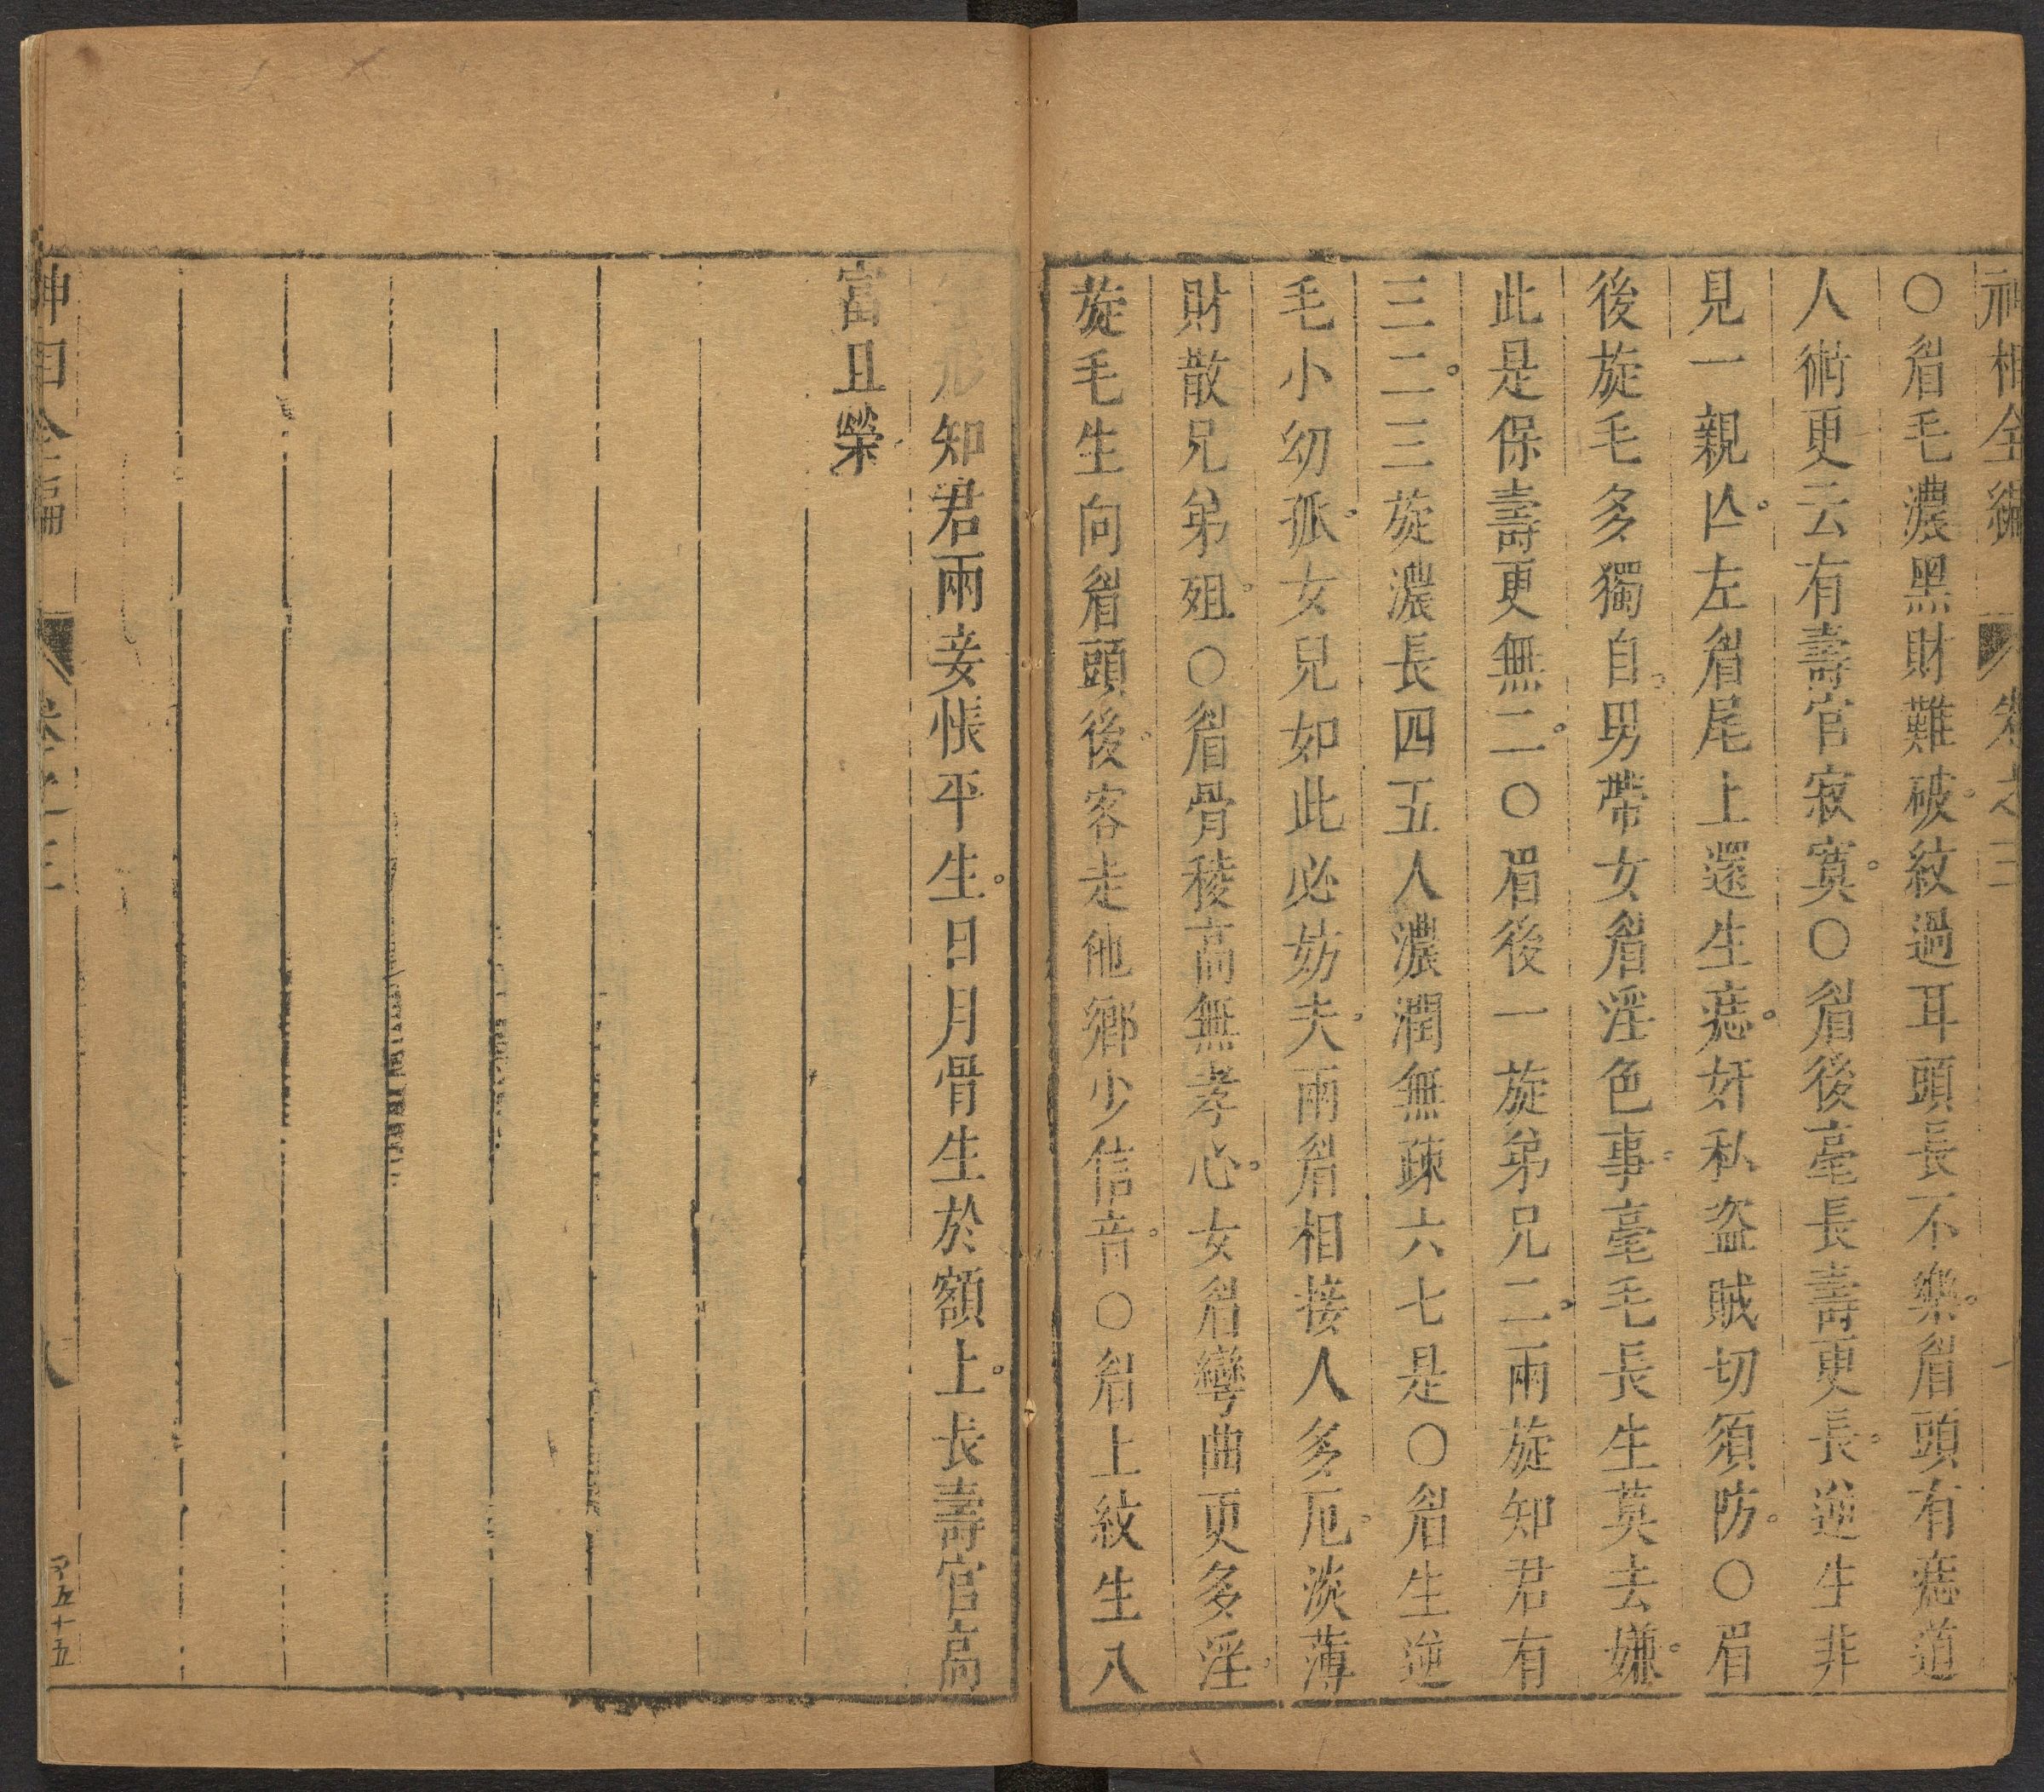 神相全編 卷之三
○眉毛濃黑財難破。紋過耳頭長不樂。眉頭有痣道
人術更云有壽官寂寞。○眉後毫長壽更長。逆生非
見一親亾。左眉尾上還生痣。奸私盜賊切須防。○眉
後旋毛多獨自。男帶女眉淫色事。毫毛長生莫去嫌。
此是保壽更無二。○眉後一旋弟兄二。兩旋知君有
三二。三旋濃長四五人濃潤無疎六七是○眉生逆
毛小幼孤。女兒如此必妨夫。兩眉相接人多厄。淡薄
財散兄弟殂。○眉骨稜高無孝心。女眉彎曲更多淫。
旋毛生向眉頭後。客走他鄉少信音。○眉上紋生八
字形知君兩妾悵平生。日月骨生於額上。長壽官高
富且榮
神相全編 卷之三 八
五十五